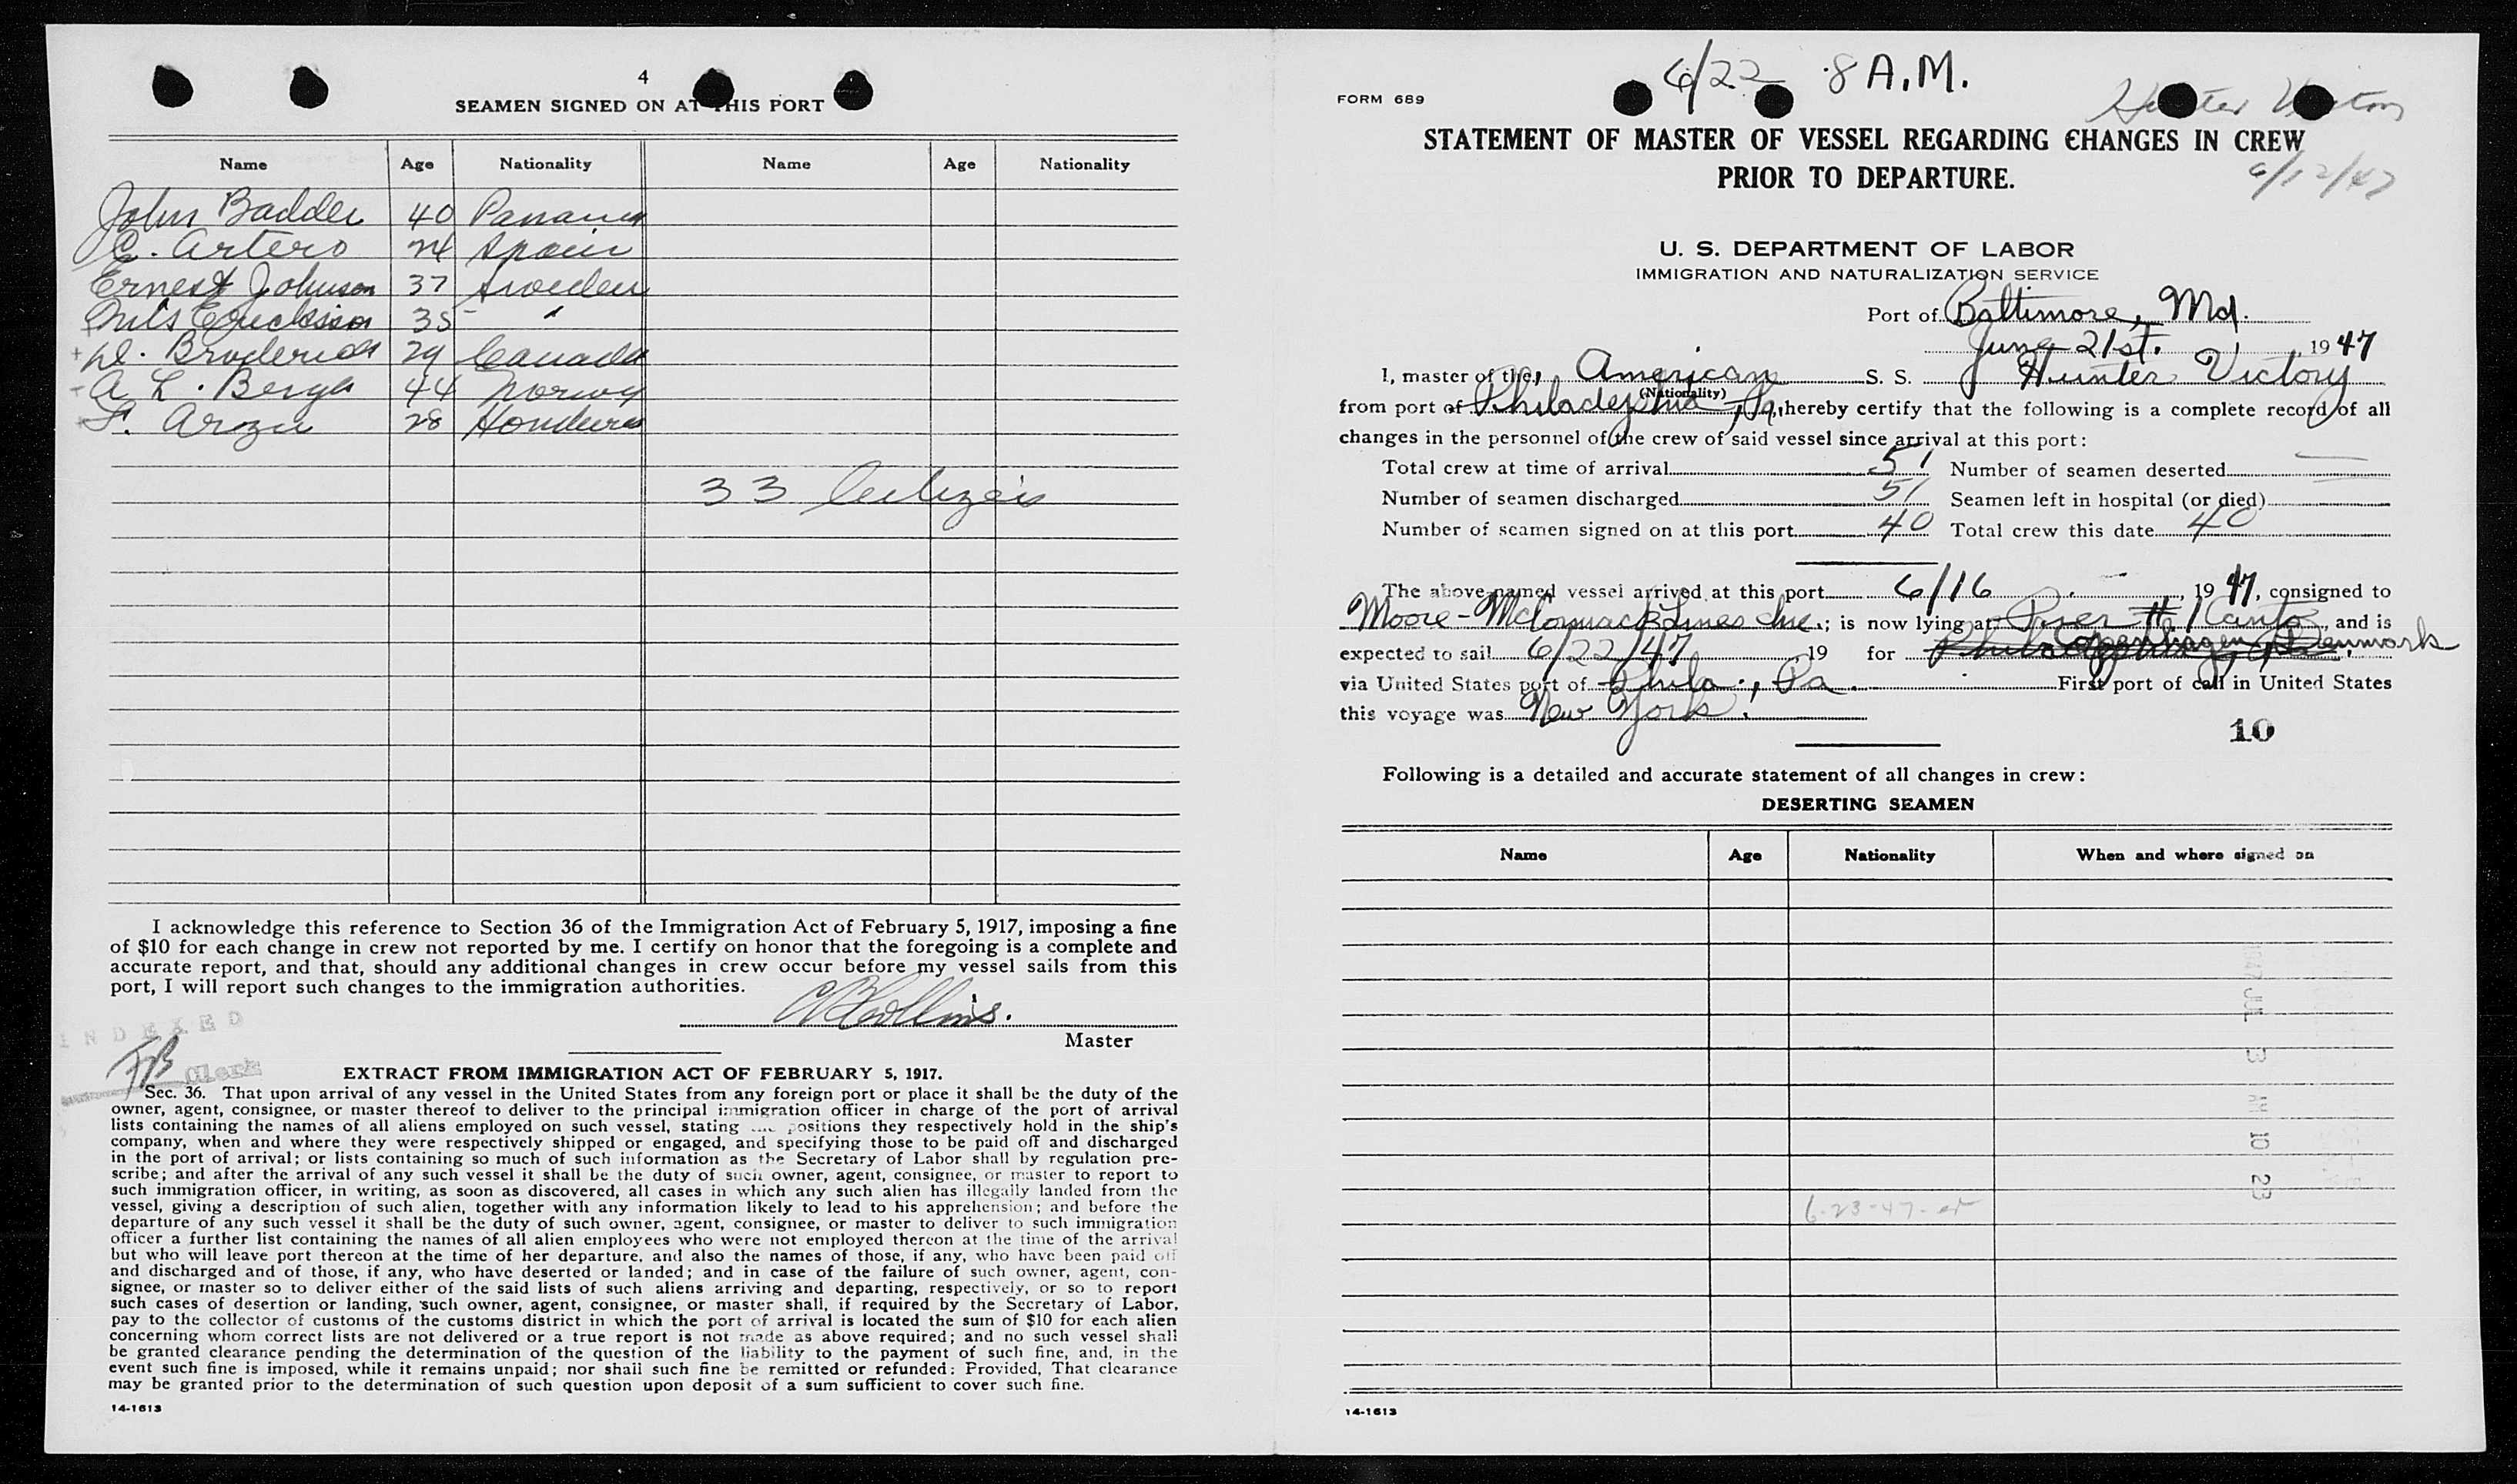 4
SEAMEN SIGNED ON AT THIS PORT
Name Age Nationality Name Age Nationality
John Badder 40 Panama
C. Artero 24 Spain
Ernest Johnson 37 Sweden
Nils Erickson 35 "
D. Broderick 29 Canada
A L. Berge 44 Norway
F. Arzu 28 Honduras
33 Citizens
I acknowledge this reference to Section 36 of the Immigration Act of February 5, 1917, imposing a fine
of $10 for each change in crew not reported by me. I certify on honor that the foregoing is a complete and
accurate report, and that, should any additional changes in crew occur before my vessel sails from this
port, I will report such changes to the immigration authorities.
Collins.
Master
INDEXED
Clerk
EXTRACT FROM IMMIGRATION ACT OF FEBRUARY 5, 1917.
Sec. 36. That upon arrival of any vessel in the United States from any foreign port or place it shall be the duty of the
owner, agent, consignee, or master thereof to deliver to the principal immigration officer in charge of the port of arrival
lists containing the names of all aliens employed on such vessel, stating the positions they respectively hold in the ship's
company, when and where they were respectively shipped or engaged, and specifying those to be paid off and discharged
in the port of arrival; or lists containing so much of such information as the Secretary of Labor shall by regulation pre-
scribe; and after the arrival of any such vessel it shall be the duty of such owner, agent, consignee, or master to report to
such immigration officer, in writing, as soon as discovered, all cases in which any such alien has illegally landed from the
vessel, giving a description of such alien, together with any information likely to lead to his apprehension; and before the
departure of any such vessel it shall be the duty of such owner, agent, consignee, or master to deliver to such immigration
officer a further list containing the names of all alien employees who were not employed thereon at the time of the arrival
but who will leave port thereon at the time of her departure, and also the names of those, if any, who have been paid off
and discharged and of those, if any, who have deserted or landed; and in case of the failure of such owner, agent, con-
signee, or master so to deliver either of the said lists of such aliens arriving and departing, respectively, or so to report
such cases of desertion or landing, such owner, agent, consignee, or master shall, if required by the Secretary of Labor,
pay to the collector of customs of the customs district in which the port of arrival is located the sum of $10 for each alien
concerning whom correct lists are not delivered or a true report is not made as above required; and no such vessel shall
be granted clearance pending the determination of the question of the liability to the payment of such fine, and, in the
event such fine is imposed, while it remains unpaid; nor shall such fine be remitted or refunded: Provided, That clearance
may be granted prior to the determination of such question upon deposit of a sum sufficient to cover such fine.
14-1613
6/22 8 A.M.
FORM 689
Hunter
STATEMENT OF MASTER OF VESSEL REGARDING CHANGES IN CREW
PRIOR TO DEPARTURE.
6/12/47
U. S. DEPARTMENT OF LABOR
IMMIGRATION AND NATURALIZATION SERVICE
Port of Baltimore, Md.
June 21st. , 19 47
I, master of the American S. S. Hunter Victory
(Nationality)
from port of Philadelphia, Pa, hereby certify that the following is a complete record of all
changes in the personnel of the crew of said vessel since arrival at this port:
Total crew at time of arrival 51 Number of seamen deserted —
Number of seamen discharged 51 Seamen left in hospital (or died) —
Number of seamen signed on at this port 40 Total crew this date 40
The above-named vessel arrived at this port 6/16 , 19 47, consigned to
Moore-McCormack Lines Inc.; is now lying at Pier # 1 Canto , and is
expected to sail 6/22/47 , 19 for Copenhagen, Denmark
via United States port of Phila., Pa. First port of call in United States
this voyage was New York.
10
Following is a detailed and accurate statement of all changes in crew:
DESERTING SEAMEN
Name Age Nationality When and where signed on
1947 JUL 3 AM 10 23
6-23-47-
14-1613